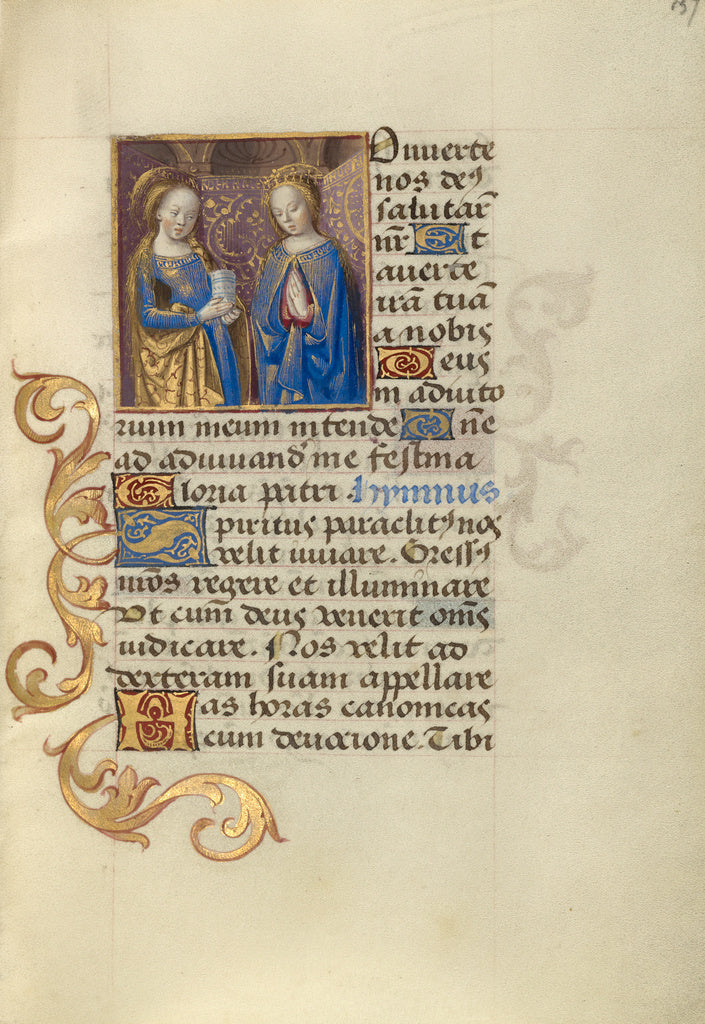 157
Conuerte
nos de9
salutar̃
nr̃ Et
auerte
irã tuã
a nobis
Deus
in adiuto
rium meum intende Dñe
ad adiuuand̃ me festina
Gloria patri . hymnus
Spiritus paraclit9 nos
velit iuuare . Gress9
n̄ros regere et illuminare
Vt cum̃ deus venerit om̃s
iudicare . Nos velit ad
dexteram suam appellare
Has horas canonicas
cum deuocione . Tibi